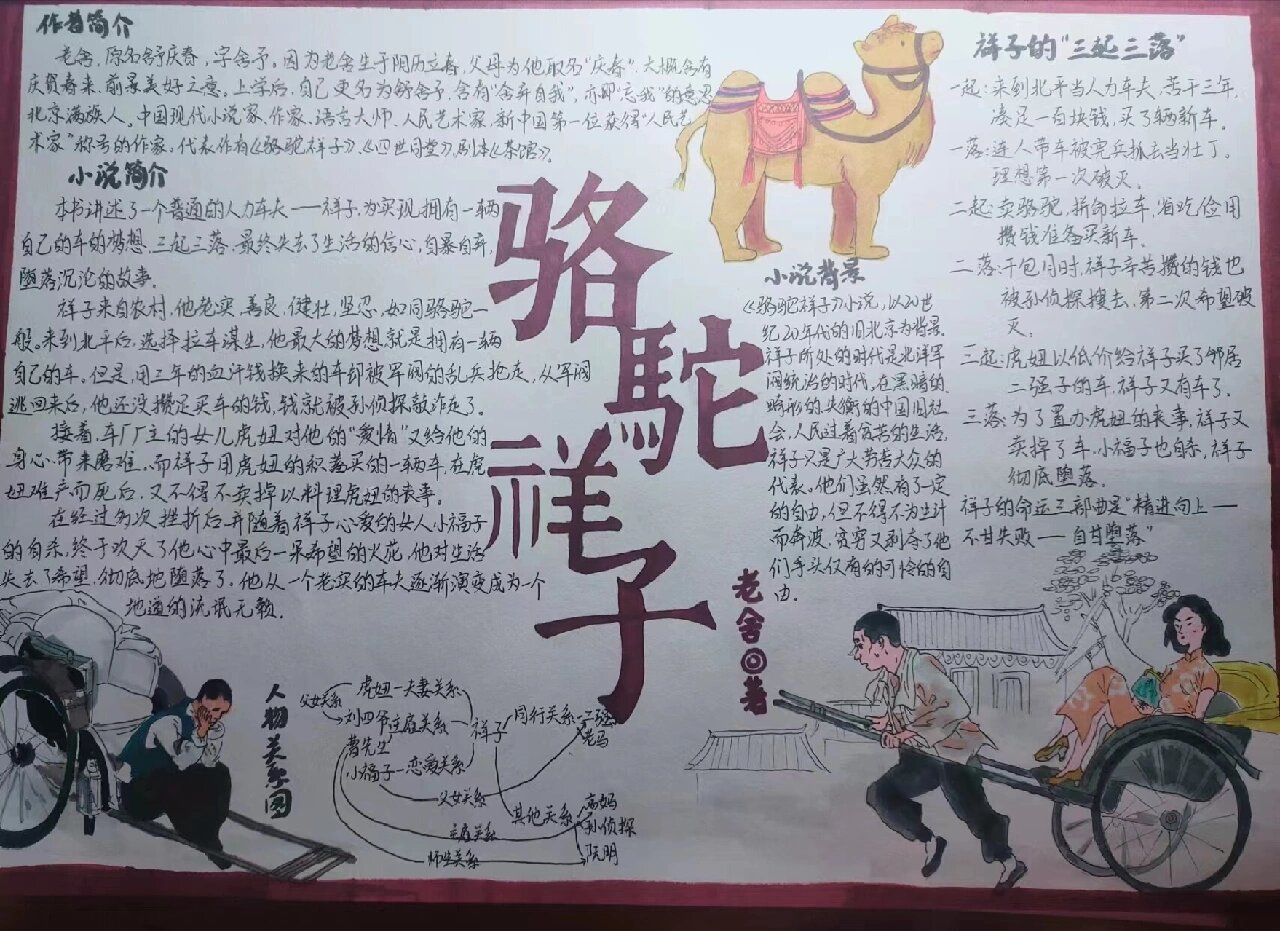 作者简介
老舍,原名舒庆春,字舍予,因为老舍生于阴历立春,父母为他取名“庆春”,大概含有
庆贺春来,前景美好之意。上学后,自己更名为舒舍予,含有“舍弃自我”,亦即“忘我”的意思
北京满族人。中国现代小说家,作家,语言大师,人民艺术家,新中国第一位获得“人民艺
术家”称号的作家。代表作有《骆驼祥子》、《四世同堂》,剧本《茶馆》。
小说简介
本书讲述了一个普通的人力车夫——祥子,为实现拥有一辆
自己的车的梦想,三起三落,最终失去了生活的信心,自暴自弃,
堕落沉沦的故事。
祥子来自农村,他老实,善良,健壮,坚忍,如同骆驼一
般。来到北平后,选择拉车谋生,他最大的梦想就是拥有一辆
自己的车。但是,用三年的血汗钱换来的车却被军阀的乱兵抢走,从军阀
逃回来后,他还没攒足买车的钱,钱就被孙侦探敲诈走了。
接着,车厂厂主的女儿虎妞对他的“爱情”又给他的
身心带来磨难。而祥子用虎妞的积蓄买的一辆车,在虎
妞难产而死后,又不得不卖掉以料理虎妞的丧事。
在经过多次挫折后,并随着祥子心爱的女人小福子
的自杀,终于吹灭了他心中最后一朵希望的火花,他对生活
失去了希望,彻底地堕落了,他从一个老实的车夫逐渐演变成为一个
地道的流氓无赖。
骆驼
祥子
老舍◎著
小说背景
《骆驼祥子》小说,以20世
纪20年代的旧北京为背景
祥子所处的时代是北洋军
阀统治的时代,在黑暗的
畸形的,失衡的中国旧社
会,人民过着贫苦的生活,
祥子只是广大劳苦大众的
代表。他们虽然有了一定
的自由,但不得不为生计
而奔波,贫穷又剥夺了他
们手头仅有的可怜的自
由.
祥子的“三起三落”
一起:来到北平当人力车夫,苦干三年,
凑足一百块钱,买了辆新车.
一落:连人带车被宪兵抓去当壮丁。
理想第一次破灭.
二起:卖骆驼,拼命拉车,省吃俭用
攒钱准备买新车.
二落:干包月时,祥子辛苦攒的钱也
被孙侦探搜去,第二次希望破
灭.
三起:虎妞以低价给祥子买了邻居
二强子的车,祥子又有车了.
三落:为了置办虎妞的丧事,祥子又
卖掉了车,小福子也自杀,祥子
彻底堕落。
祥子的命运三部曲是“精进向上——
不甘失败——自甘堕落”
人物关系图
父女关系
虎妞—夫妻关系
刘四爷主雇关系—祥子
曹先生
小福子—恋爱关系
同行关系
二强
老马
父女关系
其他关系
高妈
孙侦探
阮明
主雇关系
师生关系